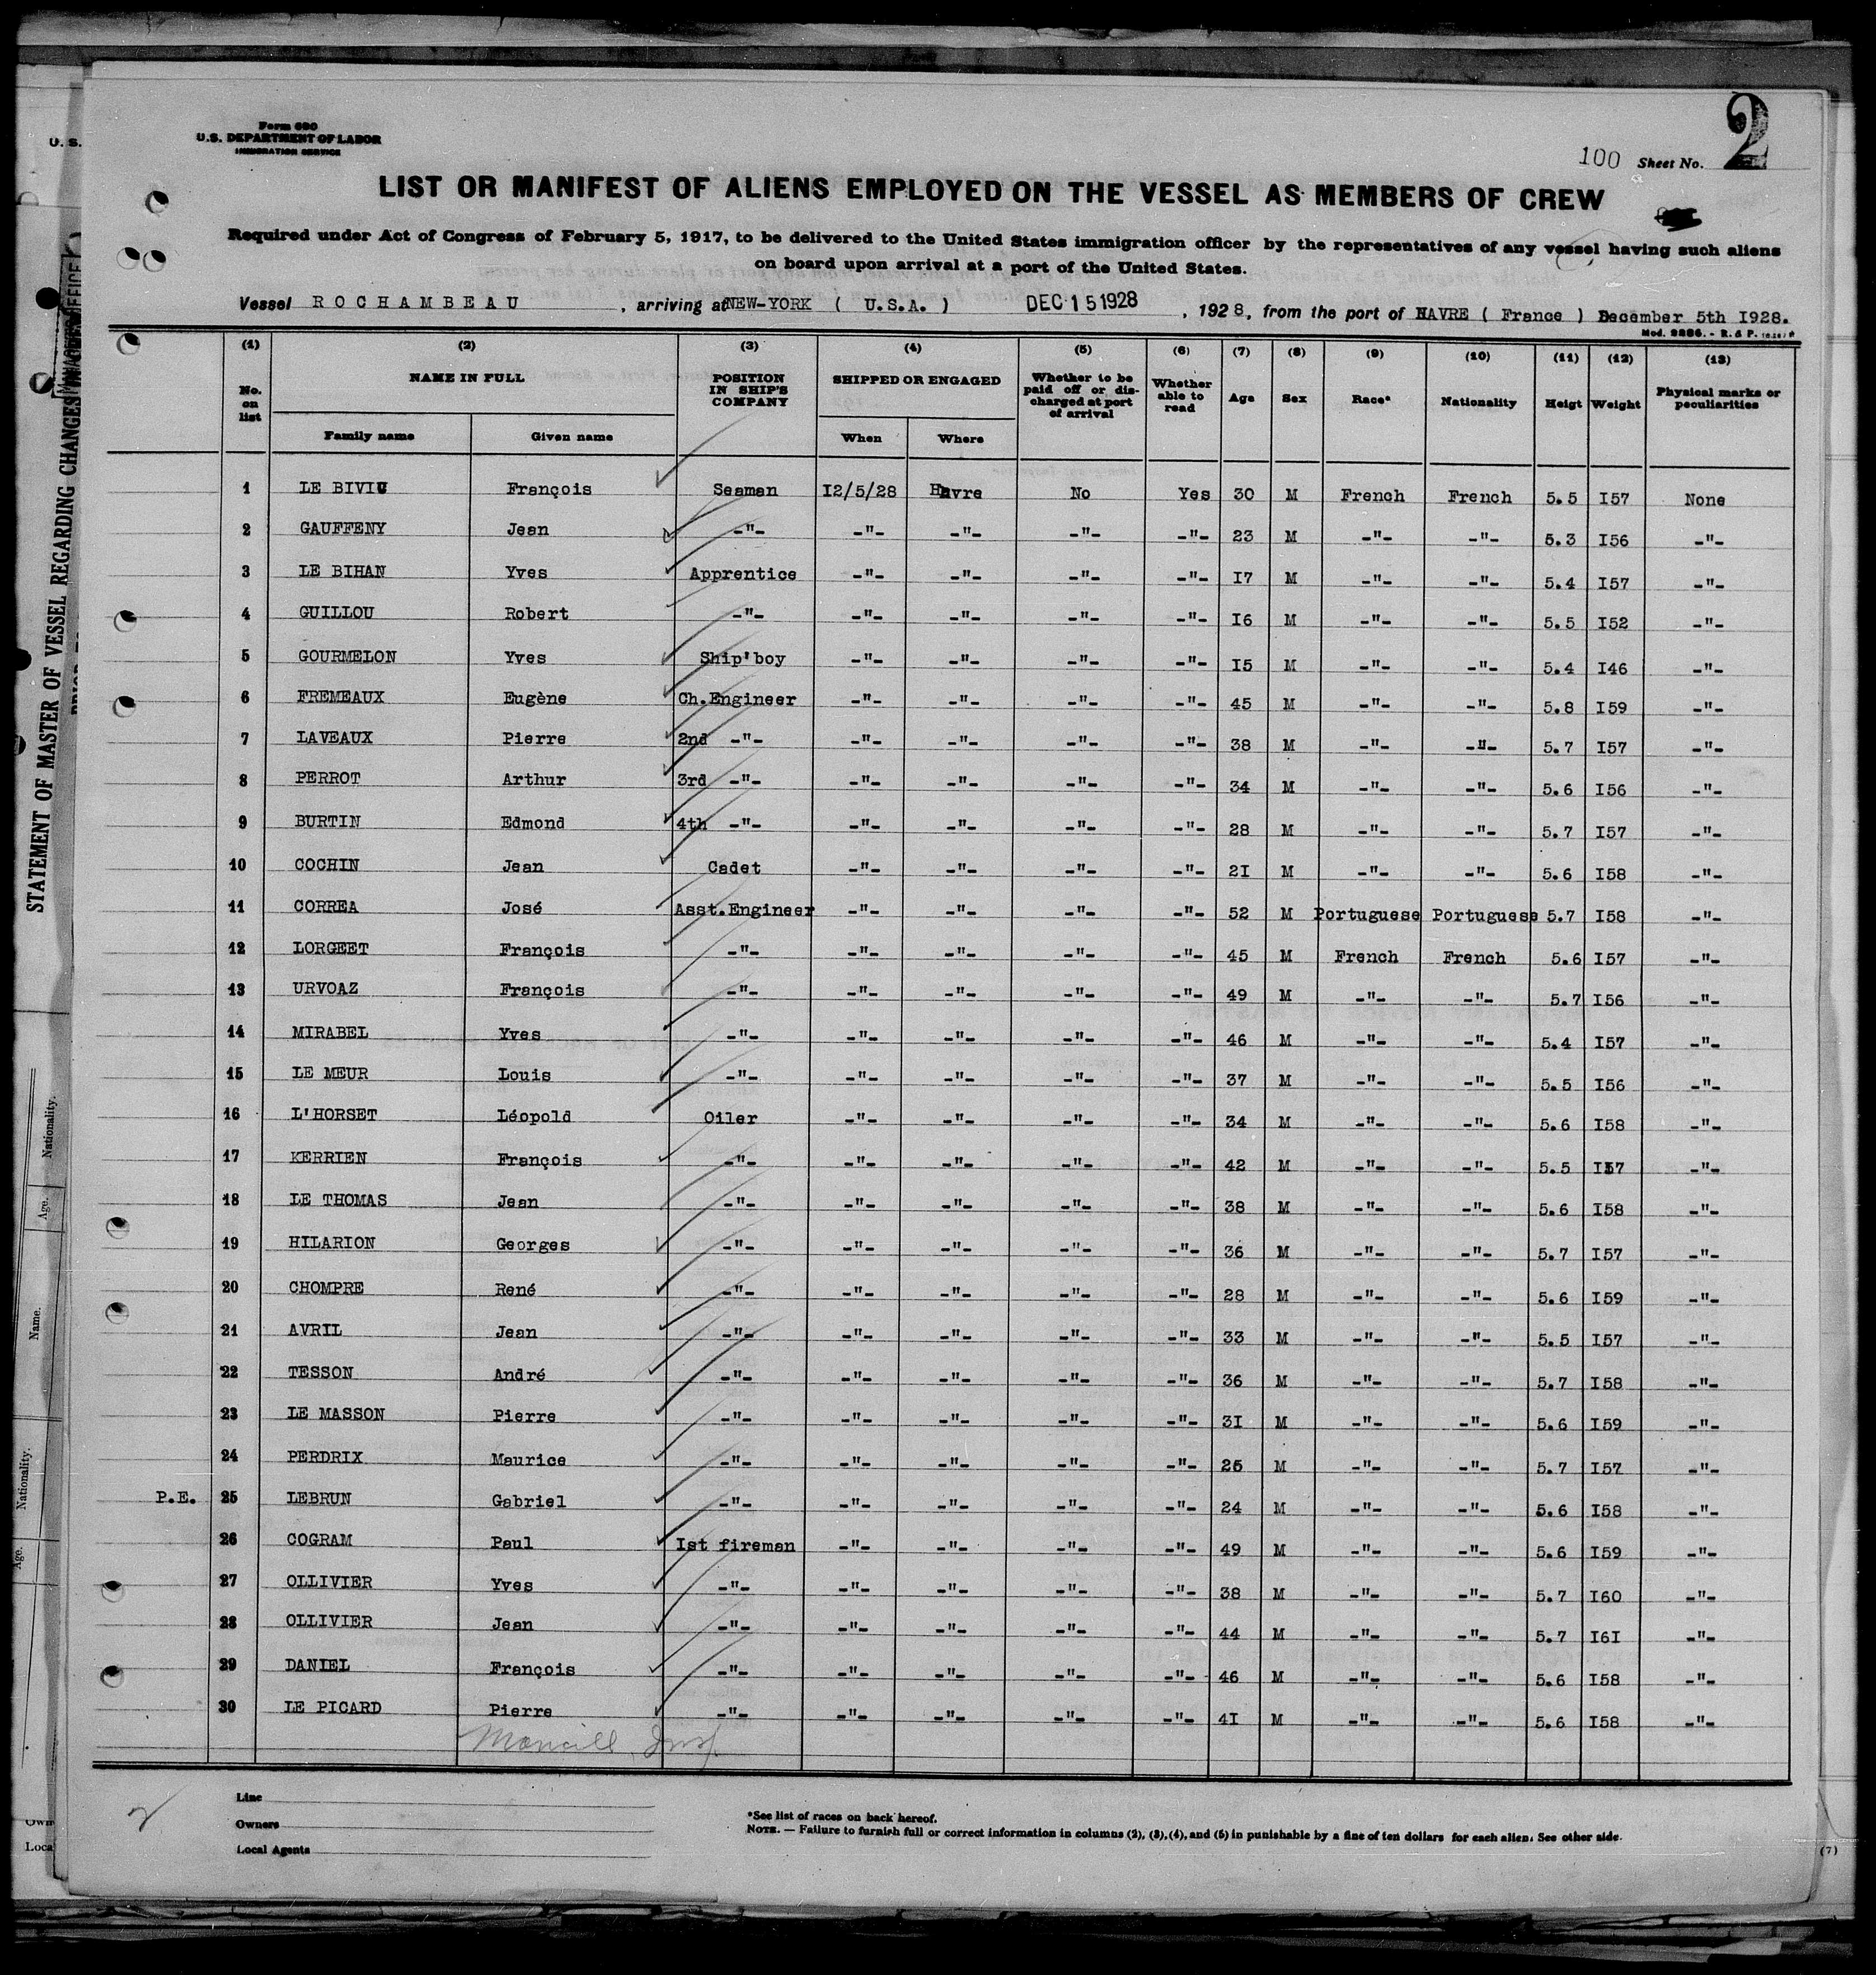 Form 680
U.S. DEPARTMENT OF LABOR
IMMIGRATION SERVICE
100 Sheet No. 2
LIST OR MANIFEST OF ALIENS EMPLOYED ON THE VESSEL AS MEMBERS OF CREW
Required under Act of Congress of February 5, 1917, to be delivered to the United States immigration officer by the representatives of any vessel having such aliens
on board upon arrival at a port of the United States.
Vessel ROCHAMBEAU , arriving at NEW-YORK ( U.S.A. ) DEC 15 1928 , 1928, from the port of HAVRE ( France ) December 5th I928.
Mod. 2286. - R. & P.
(1) (2) (3) (4) (5) (6) (7) (8) (9) (10) (11) (12) (13)
No. on list NAME IN FULL POSITION IN SHIP'S COMPANY SHIPPED OR ENGAGED Whether to be paid off or discharged at port of arrival Whether able to read Age Sex Race* Nationality Heigt Weight Physical marks or peculiarities
Family name Given name When Where
1 LE BIVIU François Seaman I2/5/28 Havre No Yes 30 M French French 5.5 I57 None
2 GAUFFENY Jean -"- -"- -"- -"- -"- 23 M -"- -"- 5.3 I56 -"-
3 LE BIHAN Yves Apprentice -"- -"- -"- -"- I7 M -"- -"- 5.4 I57 -"-
4 GUILLOU Robert -"- -"- -"- -"- -"- I6 M -"- -"- 5.5 I52 -"-
5 GOURMELON Yves Ship'boy -"- -"- -"- -"- I5 M -"- -"- 5.4 I46 -"-
6 FREMEAUX Eugène Ch.Engineer -"- -"- -"- -"- 45 M -"- -"- 5.8 I59 -"-
7 LAVEAUX Pierre 2nd -"- -"- -"- -"- -"- 38 M -"- -"- 5.7 I57 -"-
8 PERROT Arthur 3rd -"- -"- -"- -"- -"- 34 M -"- -"- 5.6 I56 -"-
9 BURTIN Edmond 4th -"- -"- -"- -"- -"- 28 M -"- -"- 5.7 I57 -"-
10 COCHIN Jean Cadet -"- -"- -"- -"- 2I M -"- -"- 5.6 I58 -"-
11 CORREA José Asst.Engineer -"- -"- -"- -"- 52 M Portuguese Portuguese 5.7 I58 -"-
12 LORGEET François -"- -"- -"- -"- -"- 45 M French French 5.6 I57 -"-
13 URVOAZ François -"- -"- -"- -"- -"- 49 M -"- -"- 5.7 I56 -"-
14 MIRABEL Yves -"- -"- -"- -"- -"- 46 M -"- -"- 5.4 I57 -"-
15 LE MEUR Louis -"- -"- -"- -"- -"- 37 M -"- -"- 5.5 I56 -"-
16 L'HORSET Léopold Oiler -"- -"- -"- -"- 34 M -"- -"- 5.6 I58 -"-
17 KERRIEN François -"- -"- -"- -"- -"- 42 M -"- -"- 5.5 I57 -"-
18 LE THOMAS Jean -"- -"- -"- -"- -"- 38 M -"- -"- 5.6 I58 -"-
19 HILARION Georges -"- -"- -"- -"- -"- 36 M -"- -"- 5.7 I57 -"-
20 CHOMPRE René -"- -"- -"- -"- -"- 28 M -"- -"- 5.6 I59 -"-
21 AVRIL Jean -"- -"- -"- -"- -"- 33 M -"- -"- 5.5 I57 -"-
22 TESSON André -"- -"- -"- -"- -"- 36 M -"- -"- 5.7 I58 -"-
23 LE MASSON Pierre -"- -"- -"- -"- -"- 3I M -"- -"- 5.6 I59 -"-
24 PERDRIX Maurice -"- -"- -"- -"- -"- 26 M -"- -"- 5.7 I57 -"-
P.E. 25 LEBRUN Gabriel -"- -"- -"- -"- -"- 24 M -"- -"- 5.6 I58 -"-
26 COGRAM Paul Ist fireman -"- -"- -"- -"- 49 M -"- -"- 5.6 I59 -"-
27 OLLIVIER Yves -"- -"- -"- -"- -"- 38 M -"- -"- 5.7 I60 -"-
28 OLLIVIER Jean -"- -"- -"- -"- -"- 44 M -"- -"- 5.7 I6I -"-
29 DANIEL François -"- -"- -"- -"- -"- 46 M -"- -"- 5.6 I58 -"-
30 LE PICARD Pierre -"- -"- -"- -"- -"- 4I M -"- -"- 5.6 I58 -"-
Line
Owners
Local Agents
*See list of races on back hereof.
NOTE. — Failure to furnish full or correct information in columns (2), (3), (4), and (5) in punishable by a fine of ten dollars for each alien. See other side.
(7)
STATEMENT OF MASTER OF VESSEL REGARDING CHANGES IN
Nationality.
Age.
Name.
Nationality.
Age.
U. S.